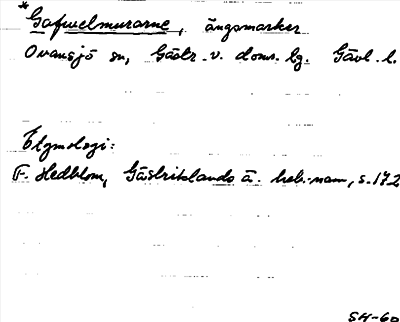 * Gafwelmurarne, ängsmarker
Ovansjö sn, Gästr. v. doms. bg. Gävl. l.
Etymologi:
F. Hedblom, Gästriklands ä. beb.-namn, s. 172
SH-60